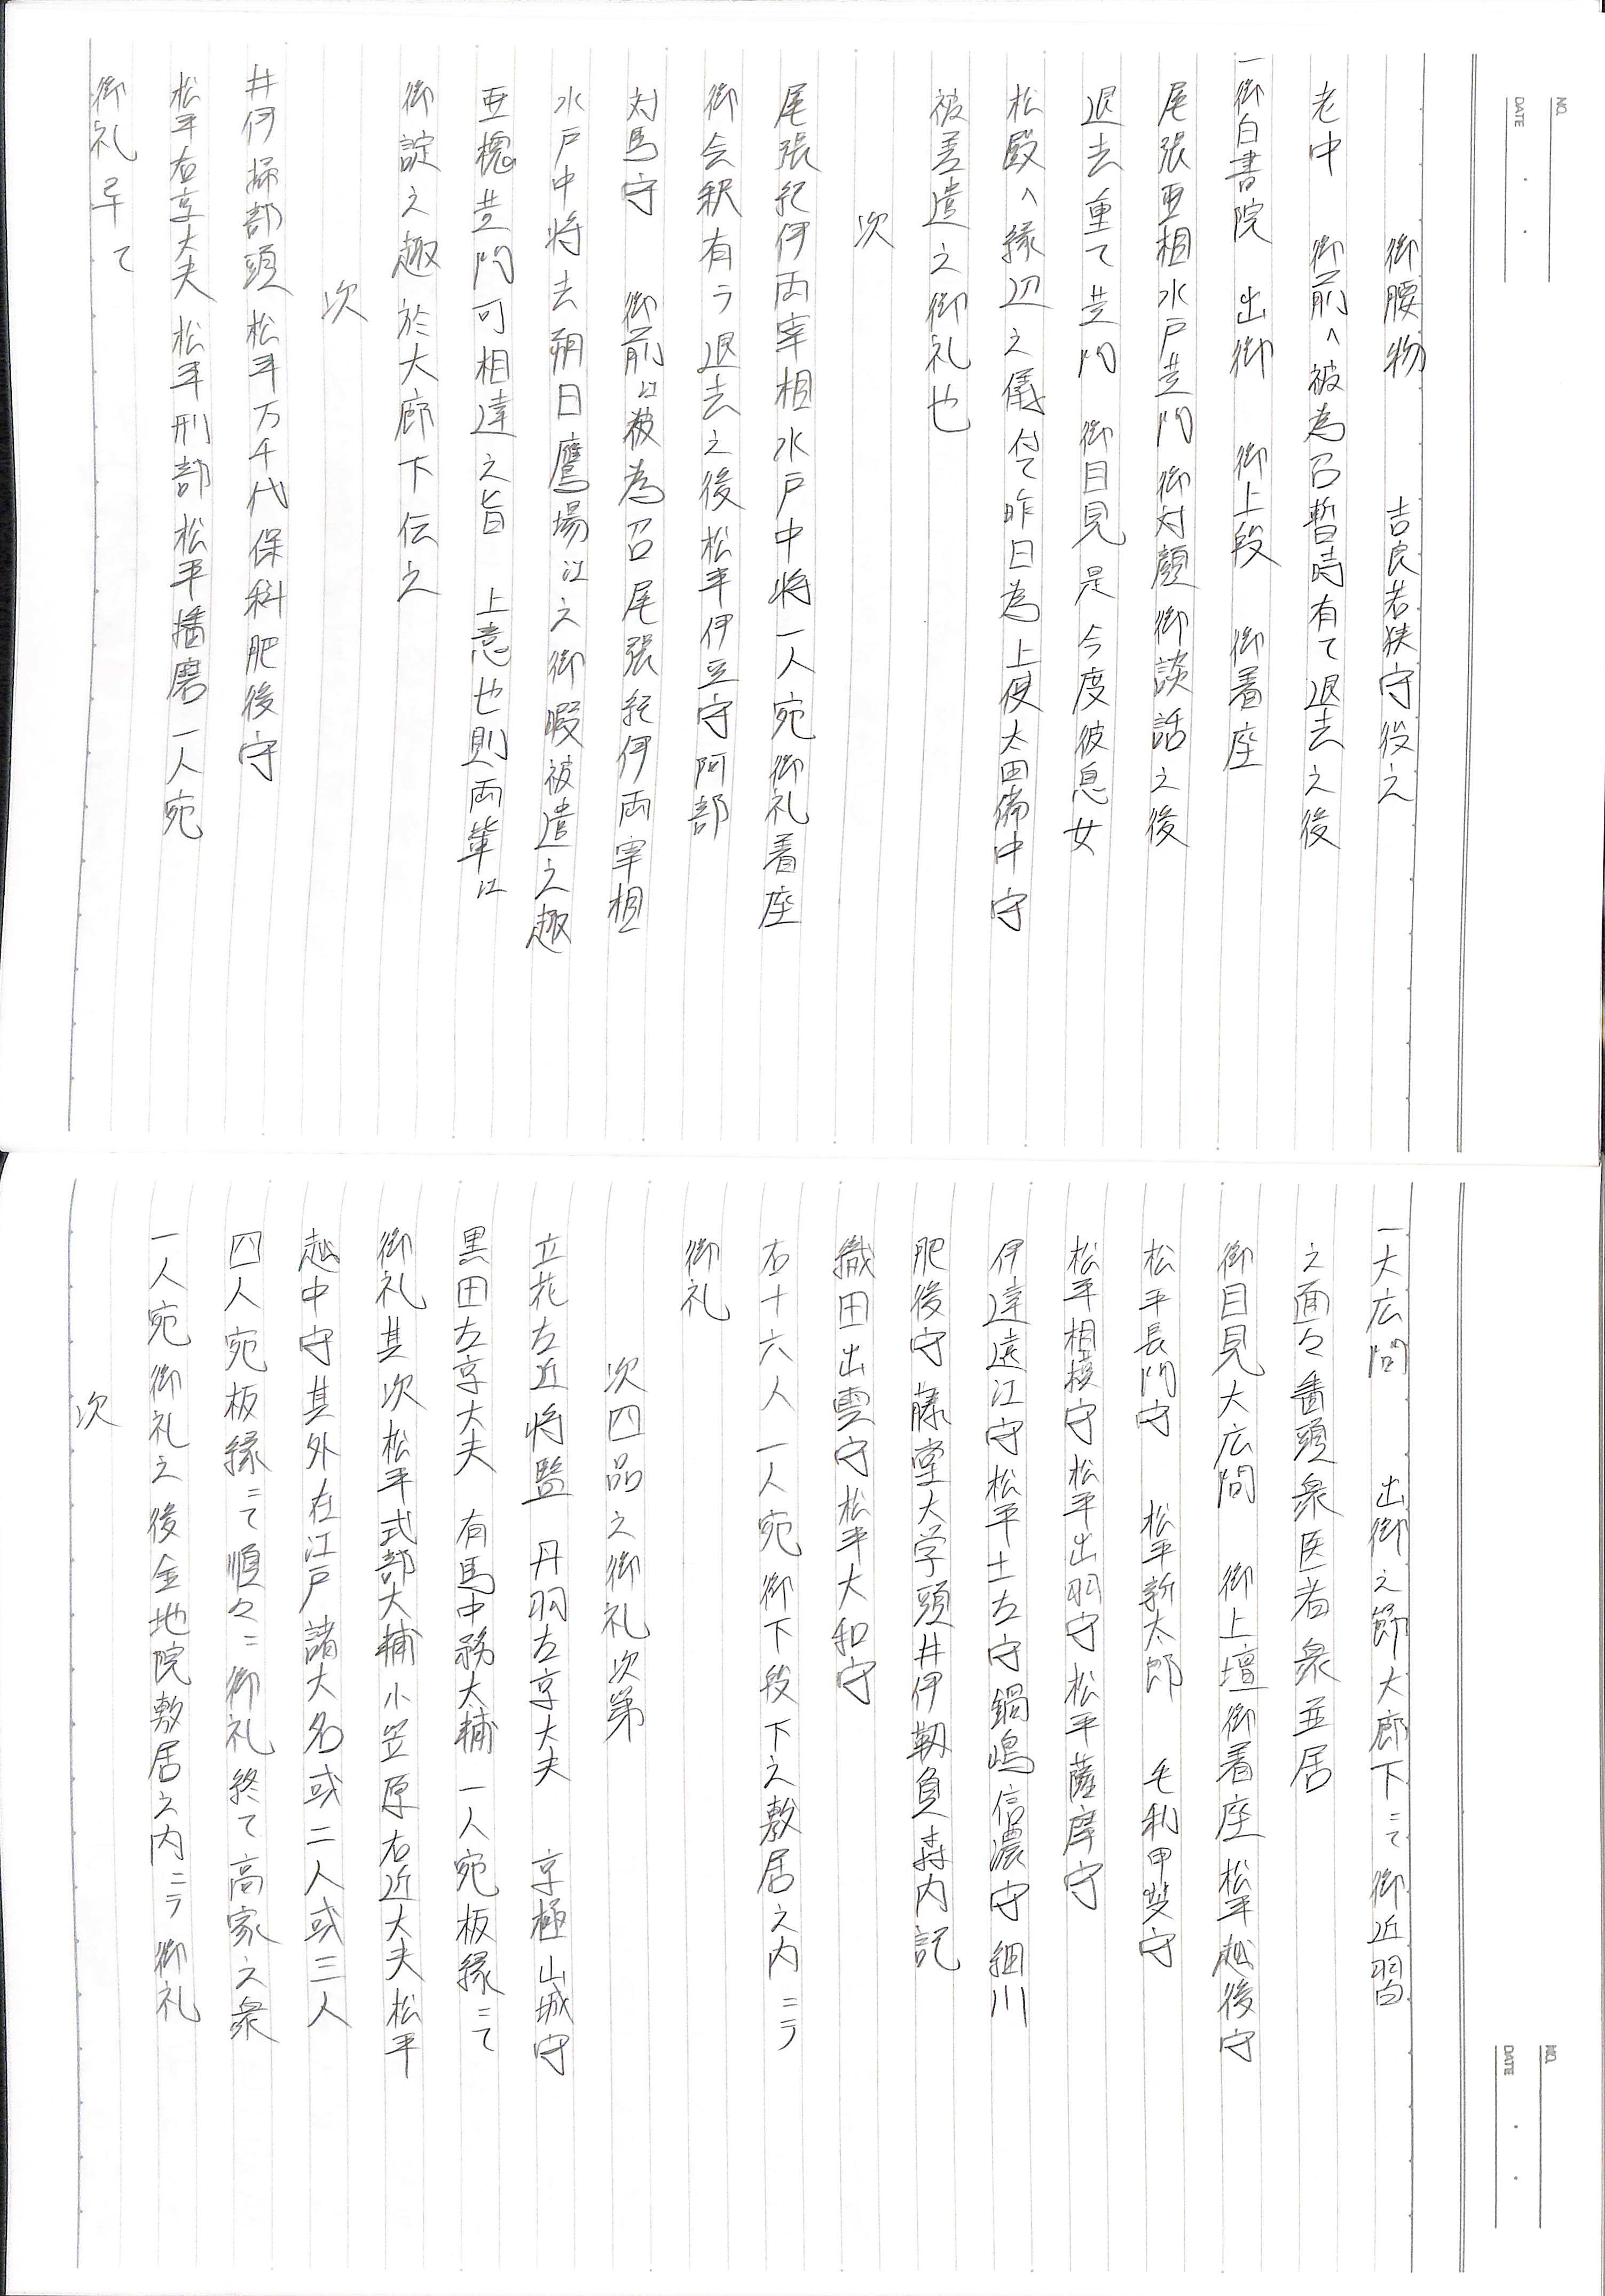 NO.
DATE
御腰物　吉良若狭守役之
老中　御前へ被為召暫時有て退去之後
一御白書院　出御　御上段　御着座
尾張亜相水戸黄門御対顔御談話之後
退去重て黄門　御目見是今度彼息女
松殿へ縁辺之儀付て昨日為上使太田備中守
被差遣之御礼也
次
尾張紀伊両宰相水戸中将一人宛御礼着座
御会釈有ラ退去之後松平伊豆守阿部
対馬守　御前江被為召尾張紀伊両宰相
水戸中将去朔日鷹場江之御暇被遣之趣
亜槐黄門可相達之旨　上意也則両輩江
御諚之趣於大廊下伝之
次
井伊掃部頭松平万千代保科肥後守
松平右京大夫松平刑部松平播磨一人宛
御礼畢て
NO.
DATE
一大広間　出御之節大廊下ニて御近習
之面々番頭衆医者衆並居
御目見大広間　御上壇御着座松平越後守
松平長門守　松平新太郎　毛利甲斐守
松平相模守松平出羽守松平薩摩守
伊達遠江守松平土左守鍋嶋信濃守細川
肥後守藤堂大学頭井伊靱負森内記
織田出雲守松平大和守
右十六人一人宛御下段下之敷居之内ニラ
御礼
次四品之御礼次第
立花左近将監　丹羽左京大夫　京極山城守
黒田左京大夫　有馬中務太輔一人宛板縁ニて
御礼其次松平式部大輔小笠原右近大夫松平
越中守其外在江戸諸大名或二人或三人
四人宛板縁ニて順々ニ御礼終て高家之衆
一人宛御礼之後金地院敷居之内ニラ御礼
次